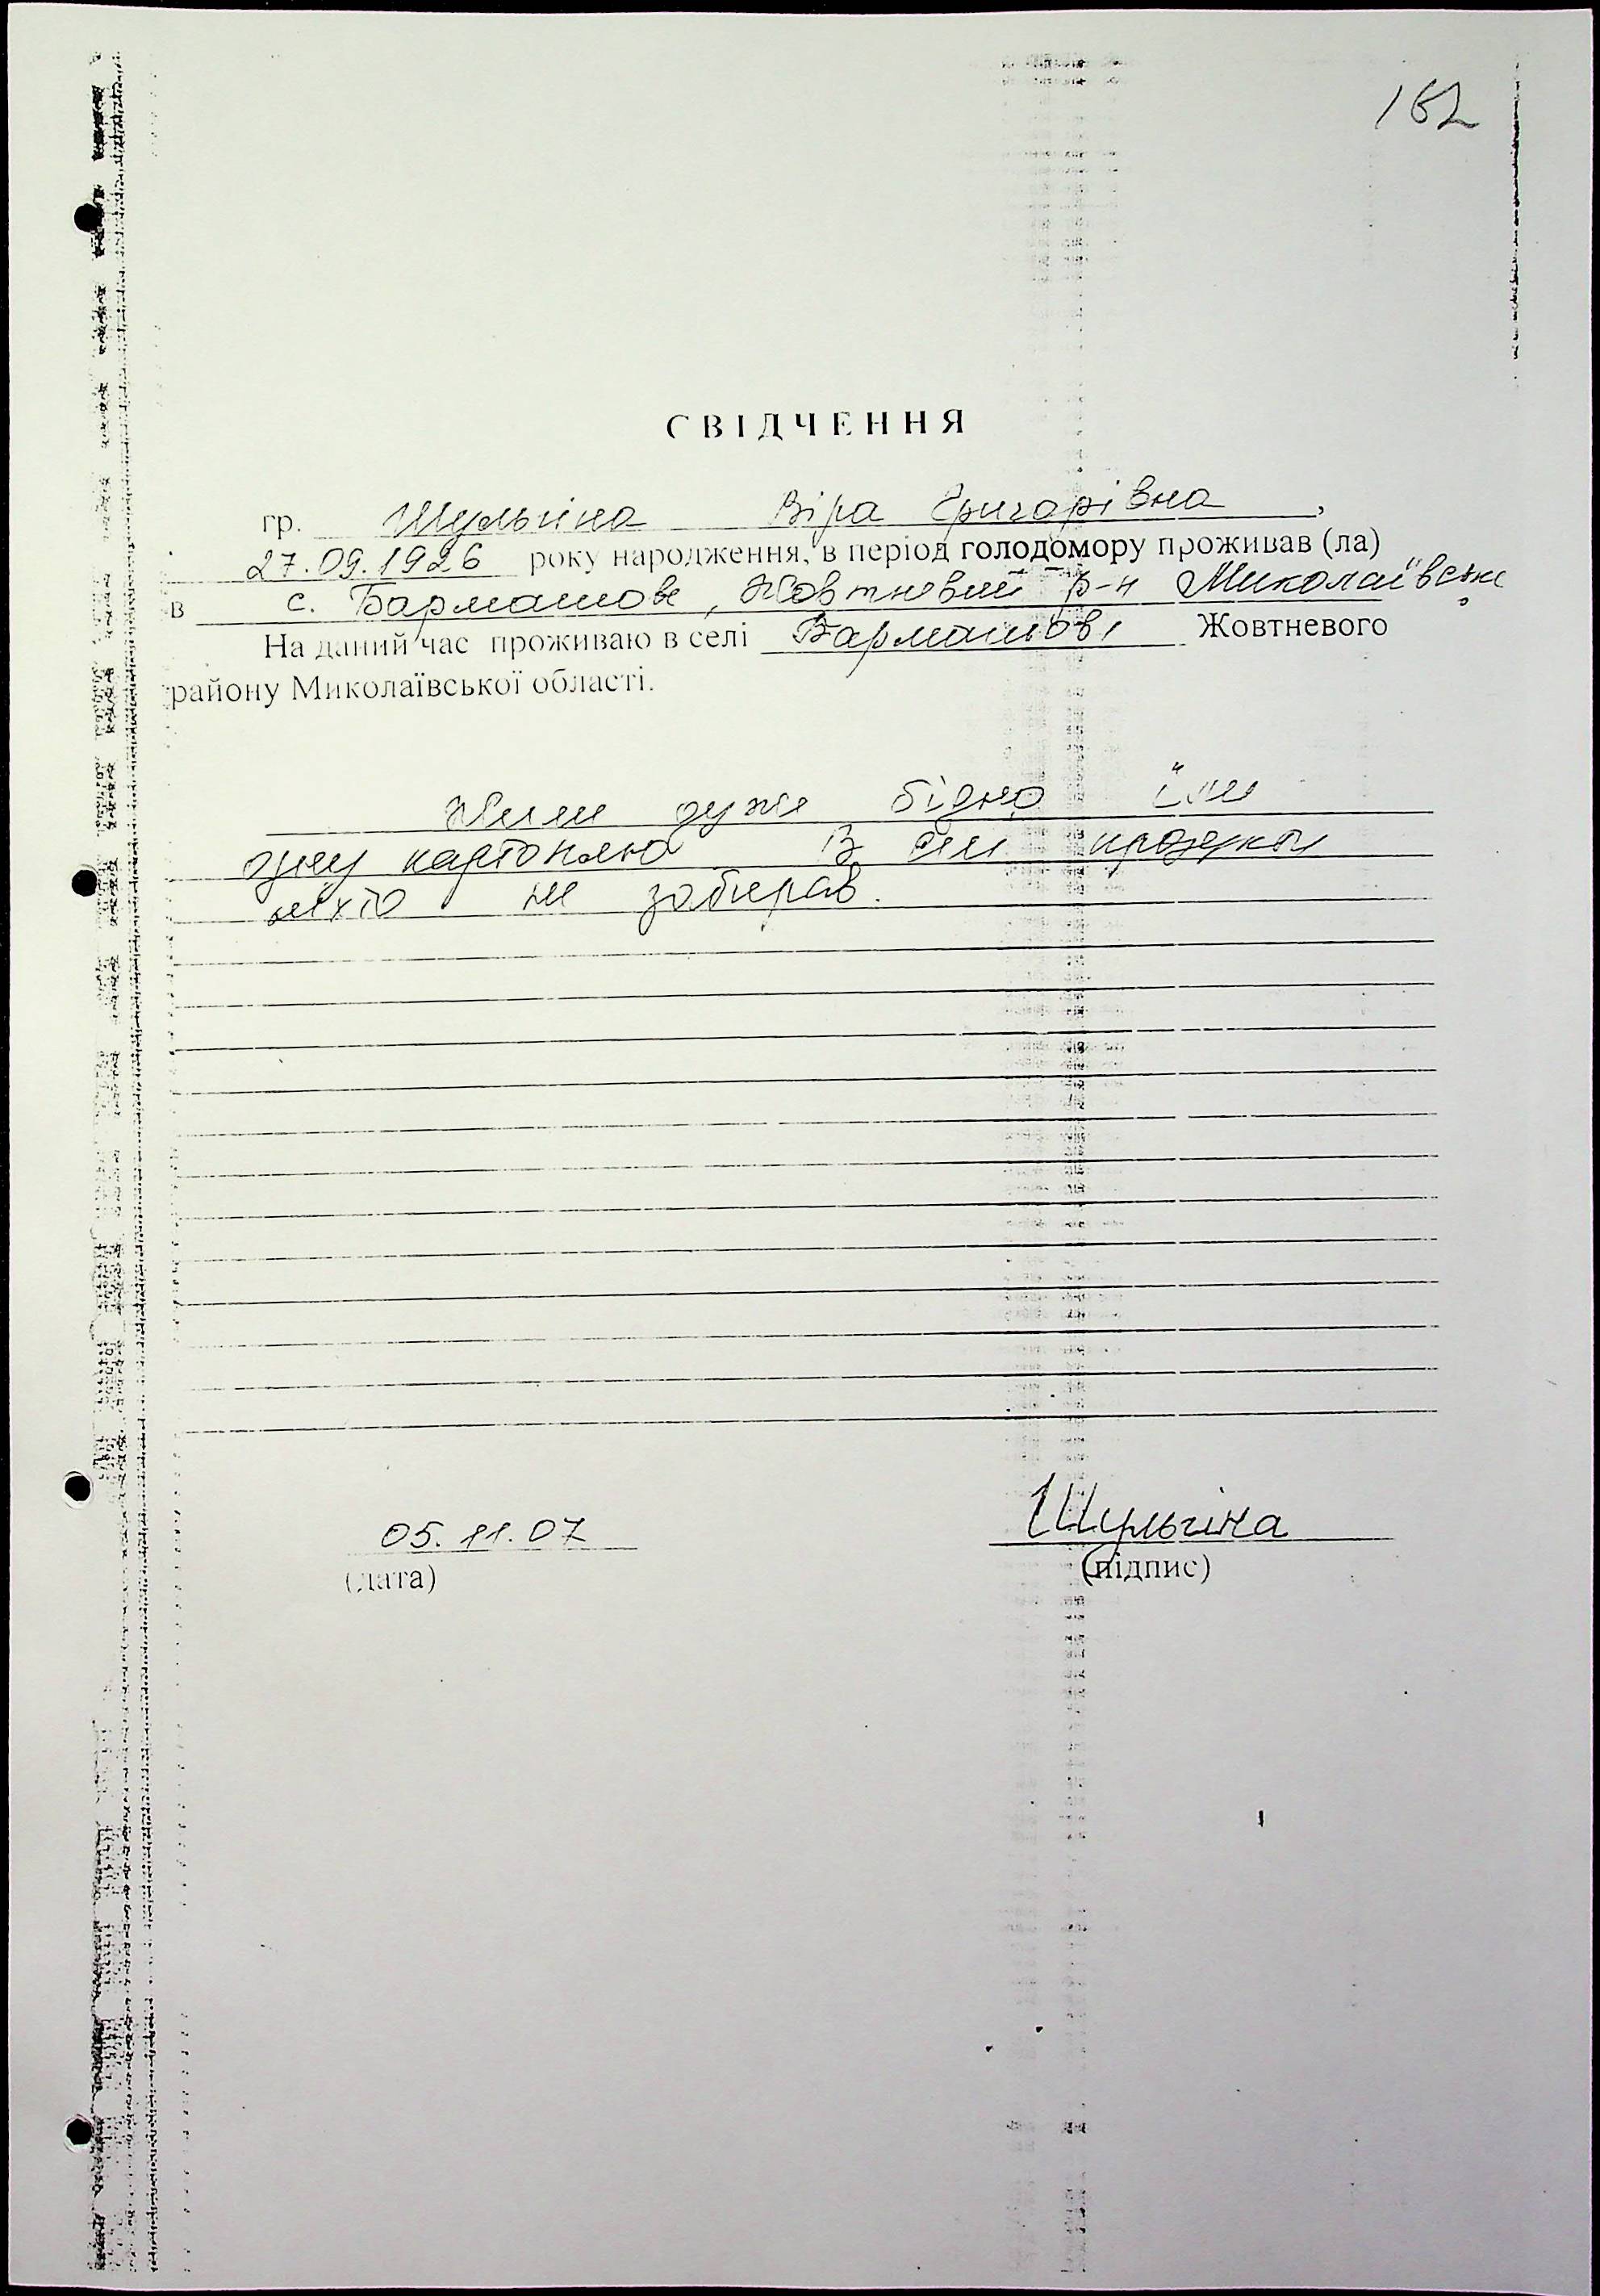 162
СВІДЧЕННЯ
гр. Шульгіна Віра Григорівна,
27.09.1926 року народження, в період голодомору проживав (ла)
в с. Бармашове, Жовтневий р-н Миколаївське
На даний час проживаю в селі Бармашові Жовтневого
району Миколаївської області.
Жили дуже бідно їли
одну картоплю В селі продукти
ніхто не забирав.
05.11.07 Шульгіна
(дата) (підпис)